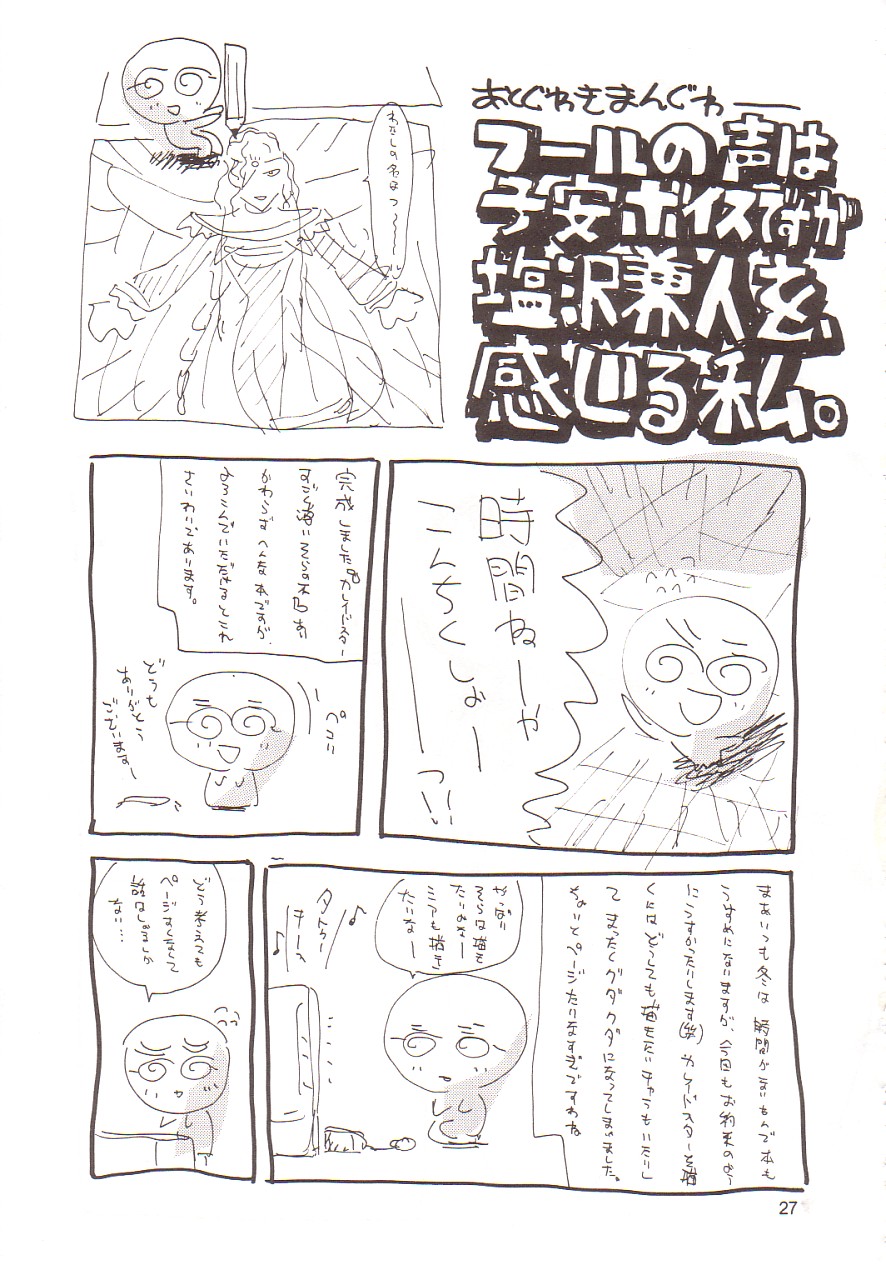 あとぐわきまんぐわ――
フールの声は
子安ボイスですが
塩沢兼人を
感じる私。
わたしの名はっ〜〜〜
時間ねーや
こんちくしょーっ!!
完成しました カレイドスター
すごく薄い そらの本
かわらずへんな本ですが、
よろこんでいただけるとこれ
さいわいであります。
ペコリ
どうも
ありがとう
ございますー
まあいつも冬は 時間がないもんで本も
うすめになりますが、今回もお約束のよう
にうすかったりします(笑) カレイドスターを描
くにはどうしても描きたいキャラもいたりし
て まったくグダグダになってしまいました。
ちょいとページたりなすぎですわね
やっぱり
そらは描き
たいよなー
ミアも描き
たいなー
どう考えても
ページすくなくして
話なしにするしか
ない…
27